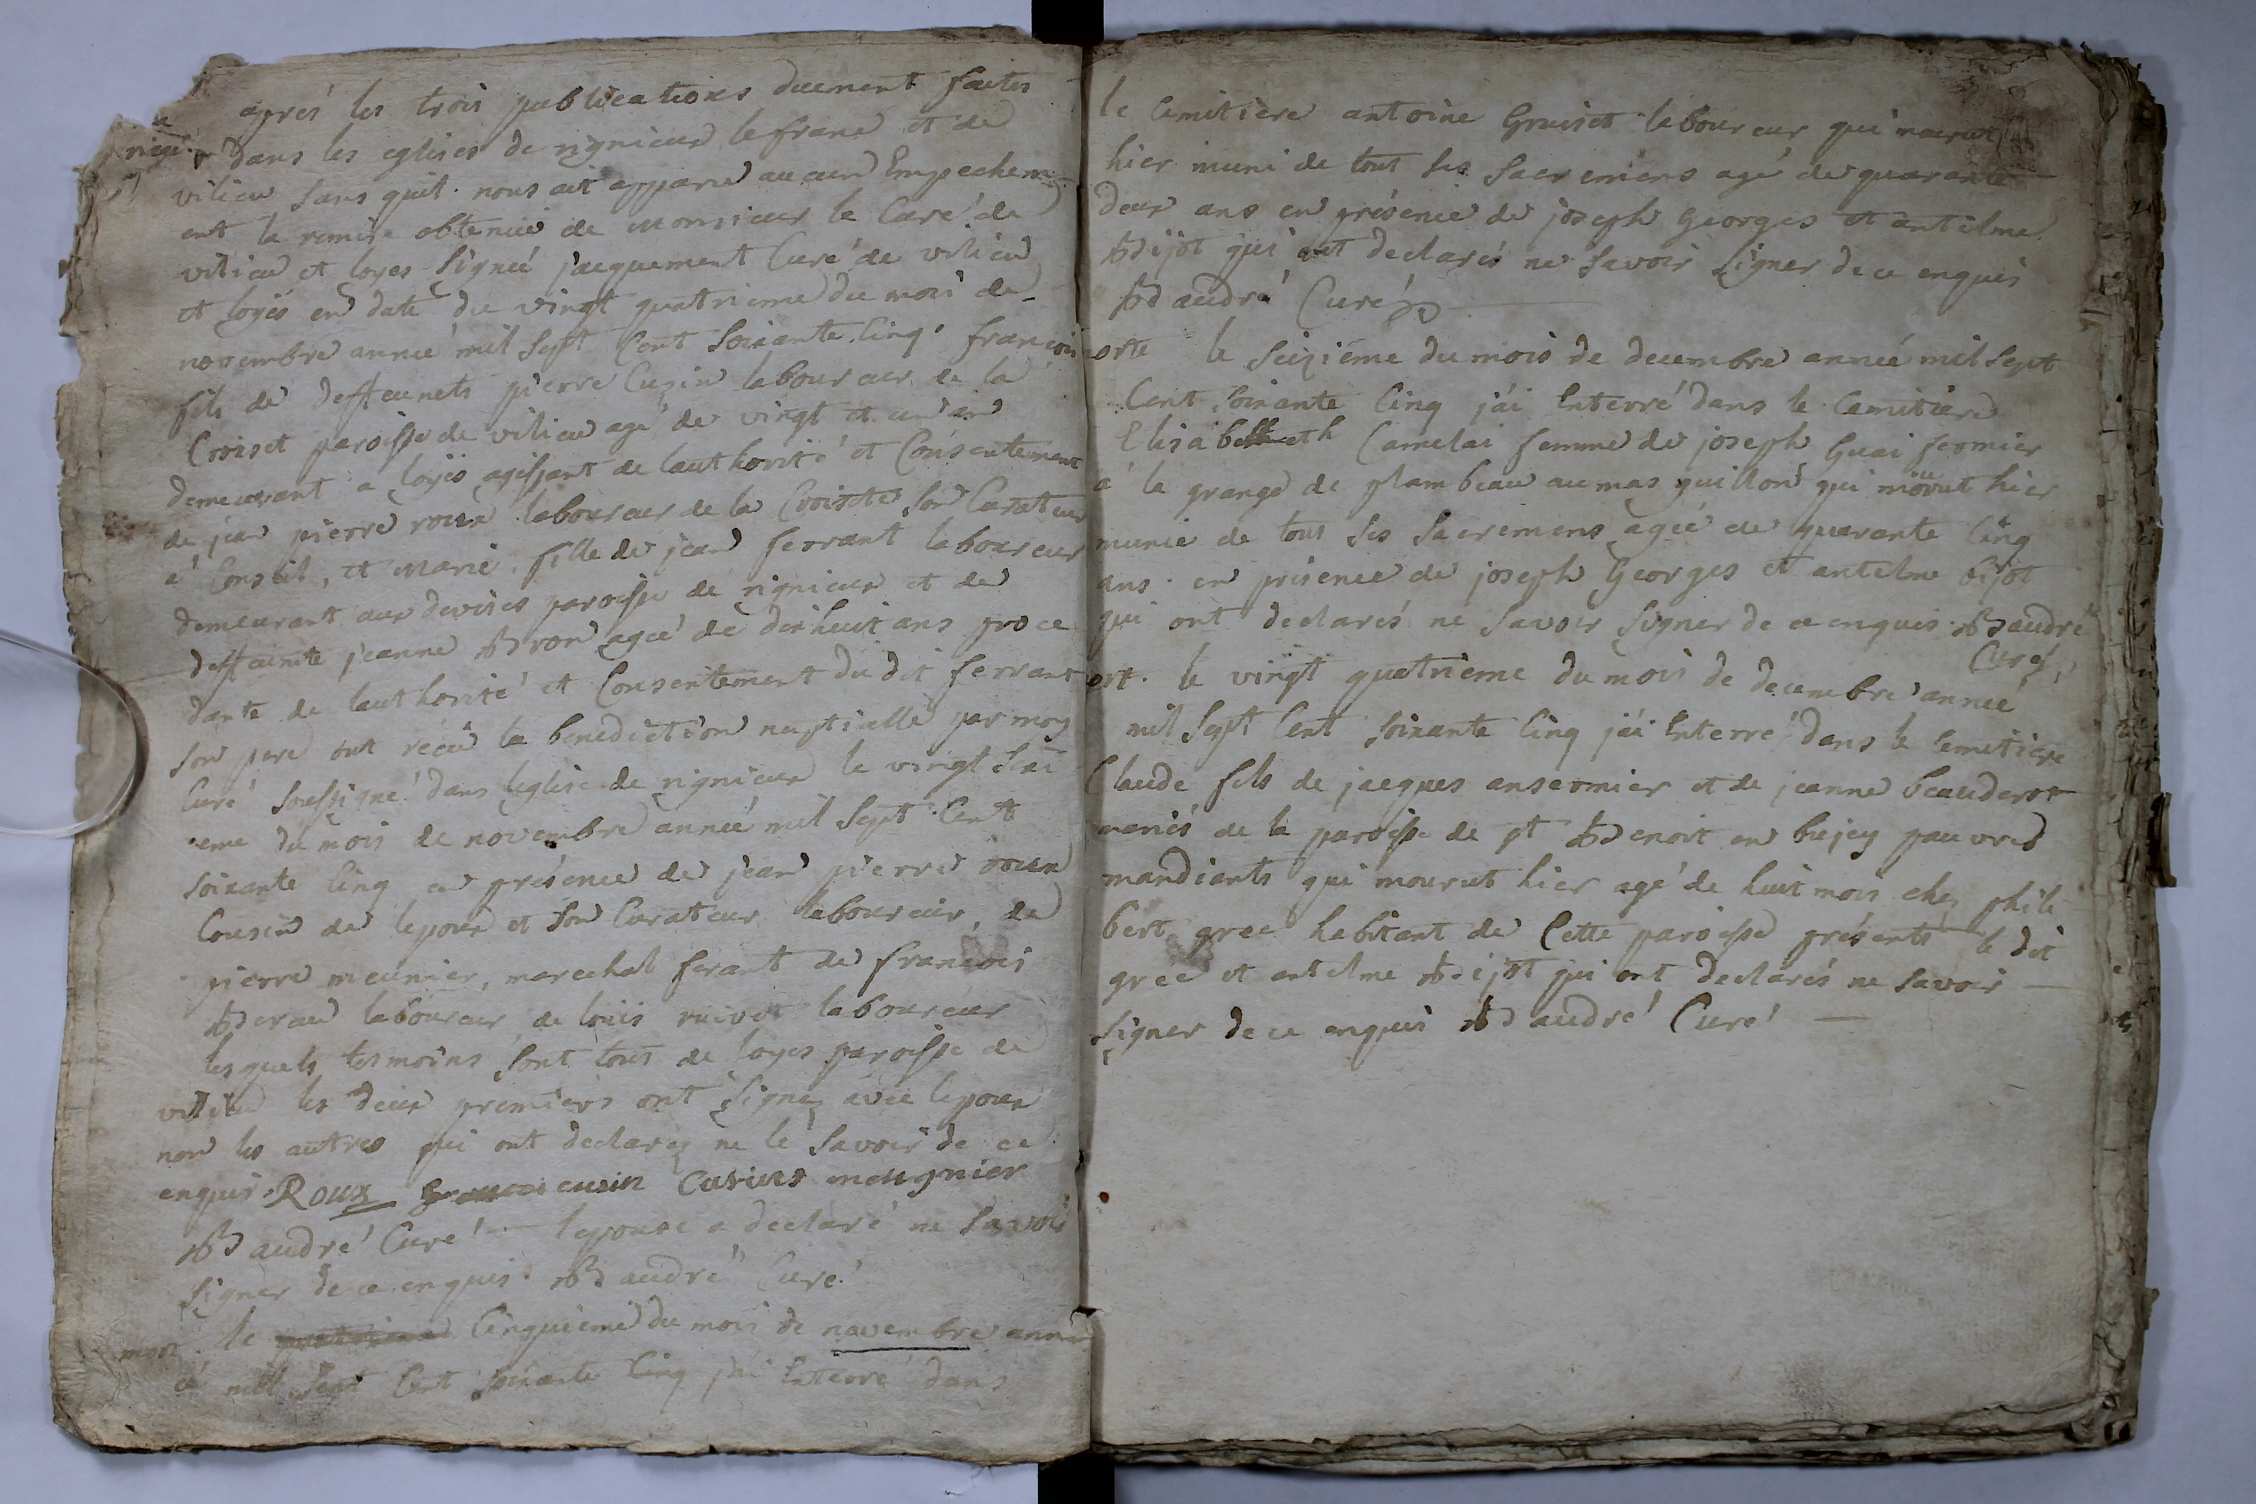 après les trois publications duement faites
dans les eglises de rignieux le franc et de
vilieu sans quil nous ait apparu aucun Empechem
ent la remise obtenue de monsieur le Curé de
vilieu et loyes signeé jacquement Curé de vilieu
et loyes en date du vingt quatrieme du mois de
novembre anneé mil sept Cent soixante Cinq. francois
fils de deffeunets pierre Cuzin laboureur de la
Croiset paroisse de vilieu agé de vingt et un an
demeurant a loyes agissant de lauthorité et Consentement
de jean pierre roux laboureur de la Croisete son Curateur
a Conseil, et marie fille de jean ferrant laboureur
demeurant aux devises paroisse de rignieux et de
deffeunte jeanne Bron ageé de dixhuit ans proce
dante de lauthorité et Consentement du dit ferrant
son pere ont reçû la benediction nuptialle par moy
Curé soussigné dans leglise de rignieux le vingt sixi
eme du mois de novembre anneé mil sept Cent
soixante Cinq en présence de jean pierre roux
Cousin de lepoux et son Curateur laboureur, de
pierre meunier, marechal ferant de francois
Berau laboureur de louis ruivet laboureur
lesquels tesmoins sont tous de loyes paroisse de
vilieu les deux premiers ont signez avec lepoux
non les autres qui ont declarez ne le savoir de ce
enquis. Roux francoi cusin mougnier
B audré Curé — lepouse a declaré ne savoir
signer de ce enquis. B audré Curé
mort. le Cinquieme du mois de novembre anne
é mil sept Cent soixante Cinq j'ai Enterré dans
le Cemitiere antoine Gruiset laboureur qui mourut
hier muni de tout ses sacremens agé de quarante
deux ans en présence de joseph Georges et antelme
Bijot qui ont declarés ne savoir signer de ce enquis
B audré Curé
orte le seizième du mois de decembre anneé mil sept
Cent soixante Cinq j'ai Enterré dans le Cemitiere
Elisabeth Camelai femme de joseph Guai fermier
à la grange de plambeau au mas guillon qui mourut hier
munie de tous ses sacremens ageé de quarante Cinq
ans en présence de joseph Georges et antelme bijot
qui ont declarés ne savoir signer de ce enquis. B audré
Curé
ort. le vingt quatrieme du mois de decembre anneé
mil sept Cent soixante Cinq j'ai Enterré dans le Cemitiere
Claude fils de jacques ansermier et de jeanne beauderot
mariés de la paroisse de st Benoit en bugey pauvres
mandiants qui mourut hier agé de huit mois chez phili
bert gree habitant de Cette paroisse présents le dit
gree et antelme Bijot qui ont declarés ne savoir —
signer de ce enquis B audré Curé —